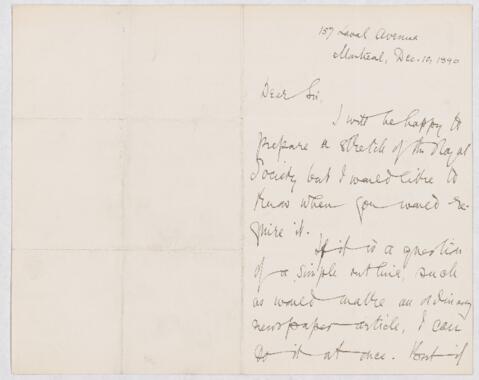 157 Laval Avenue
Montreal, Dec. 10, 1890
Dear Sir,
I will be happy to
prepare a sketch of the Royal
Society but I would like to
know when you would re-
quire it.
If it is a question
of a simple outline, such
as would make an ordinary
newspaper article, I can
do it at once. But if